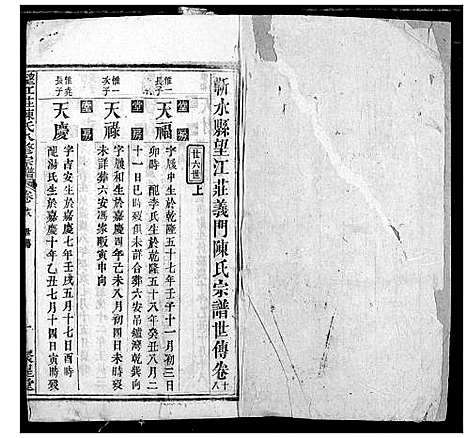 蘄水縣望江莊義門陳氏宗譜世傳卷十八
廿六世上
惟一長子
堂房
天福
字履中生於乾隆五十七年壬子十一月初三日
卯時 配李氏生於乾隆五十八年癸丑八月二
十一日巳時歿俱未詳合葬六安吊鐘灣乾巽向
惟一次子
堂房
天祿
字履和生於嘉慶四年己未八月初四日未時歿
未詳葬六安馮家畈寅申向
惟堯長子
堂
天慶
字古安生於嘉慶七年壬戌五月十七日酉時
配湯氏生於嘉慶十年乙丑七月十四日寅時歿
望江莊陳氏八修宗譜 卷 世傳
一 聚星堂